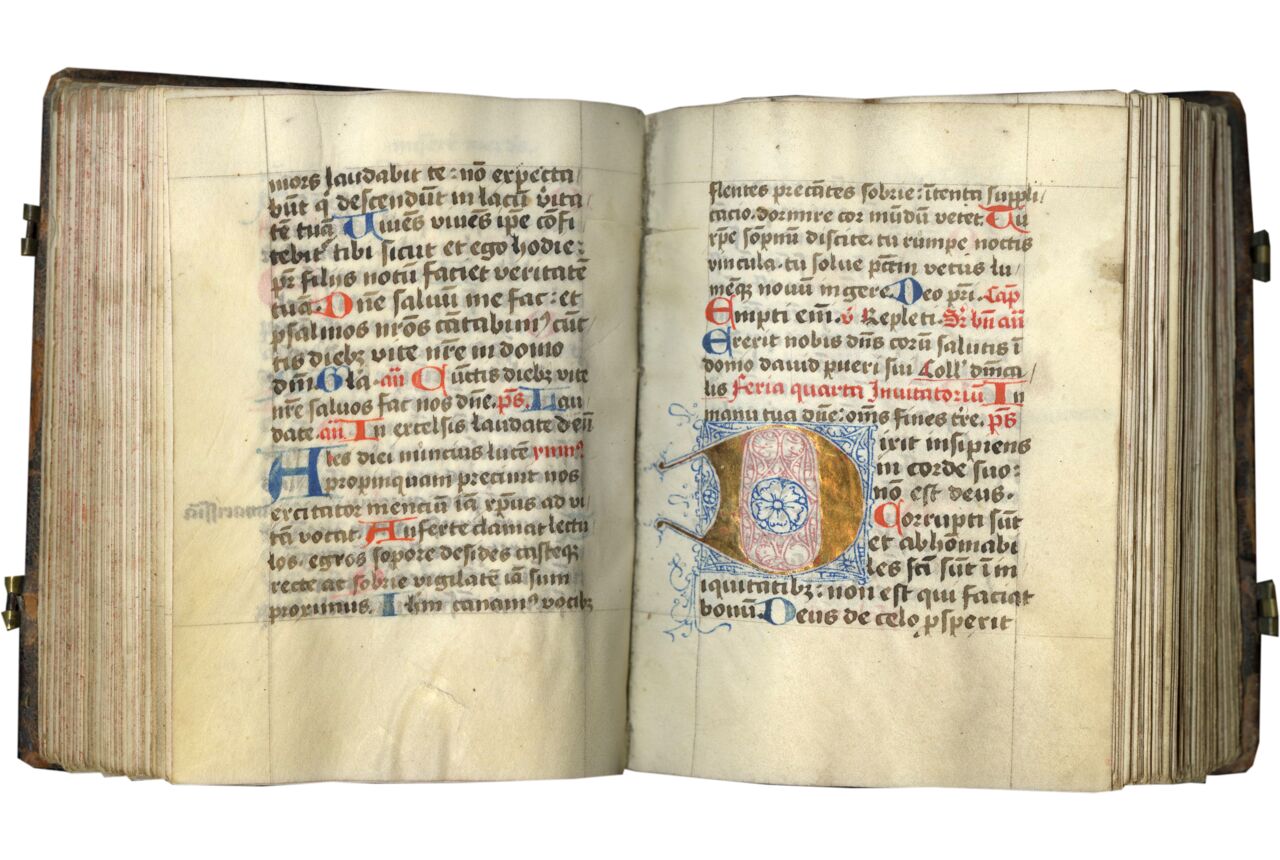 mors laudabit te: nō expecta/
būt q̇ descendūt in lacū v̇ita/
tē tuā Uiuēs viuēs ip̄e cōfi/
tebit tibi sicut et ego hodie:
pr̄ filiis notū faciet veritatē
tuā. Dn̄e saluū me fac: et
psalmos nr̄os cātabimꝰ cūc/
tis diebꝫ vite nr̄e in domo
dn̄i Gla. añ Cūctis diebꝫ vite
nr̄e saluos fac nos dn̄e. p̄s. Lau/
date. añ In excelsis laudate deū
Ales diei nuncius lucē ymnꝰ
apropinquam precinit nos
excitator menciū iā xp̄us ad vi/
tā vocat. Auferte clamat lectu/
los. egros sopore desides casteqꝫ
recte ac sobrie vigilate iā sum
proximus. Ihm canamꝰ vocibꝫ
flentes precātes sobrie: ītenta suppli/
cacio. dormire cor mūdū vetet Tu
xp̄e sōpnū discite. tu rumpe noctis
vincula. tu solue pctm̄ vetus lu/
mēqꝫ nouū ingere. Deo pr̄i. Cap̄
Empti em̄. v̇ Repleti. Sr̄ bn̄ añ
Erexit nobis dn̄s cornū salutis ī
domo dauid pueri sui Coll' dm̄ca/
lis Feria quarta Inuitatoriū In
manu tua dn̄e: om̄s fines tr̄e. p̄s
Dixit insipiens
in corde suo:
nō est deus.
Corrupti sūt
et abhōmabi
les fcī sūt ī m̄
iquitatibꝫ: non est qui faciat
bonū. Deus de celo ꝓspexit